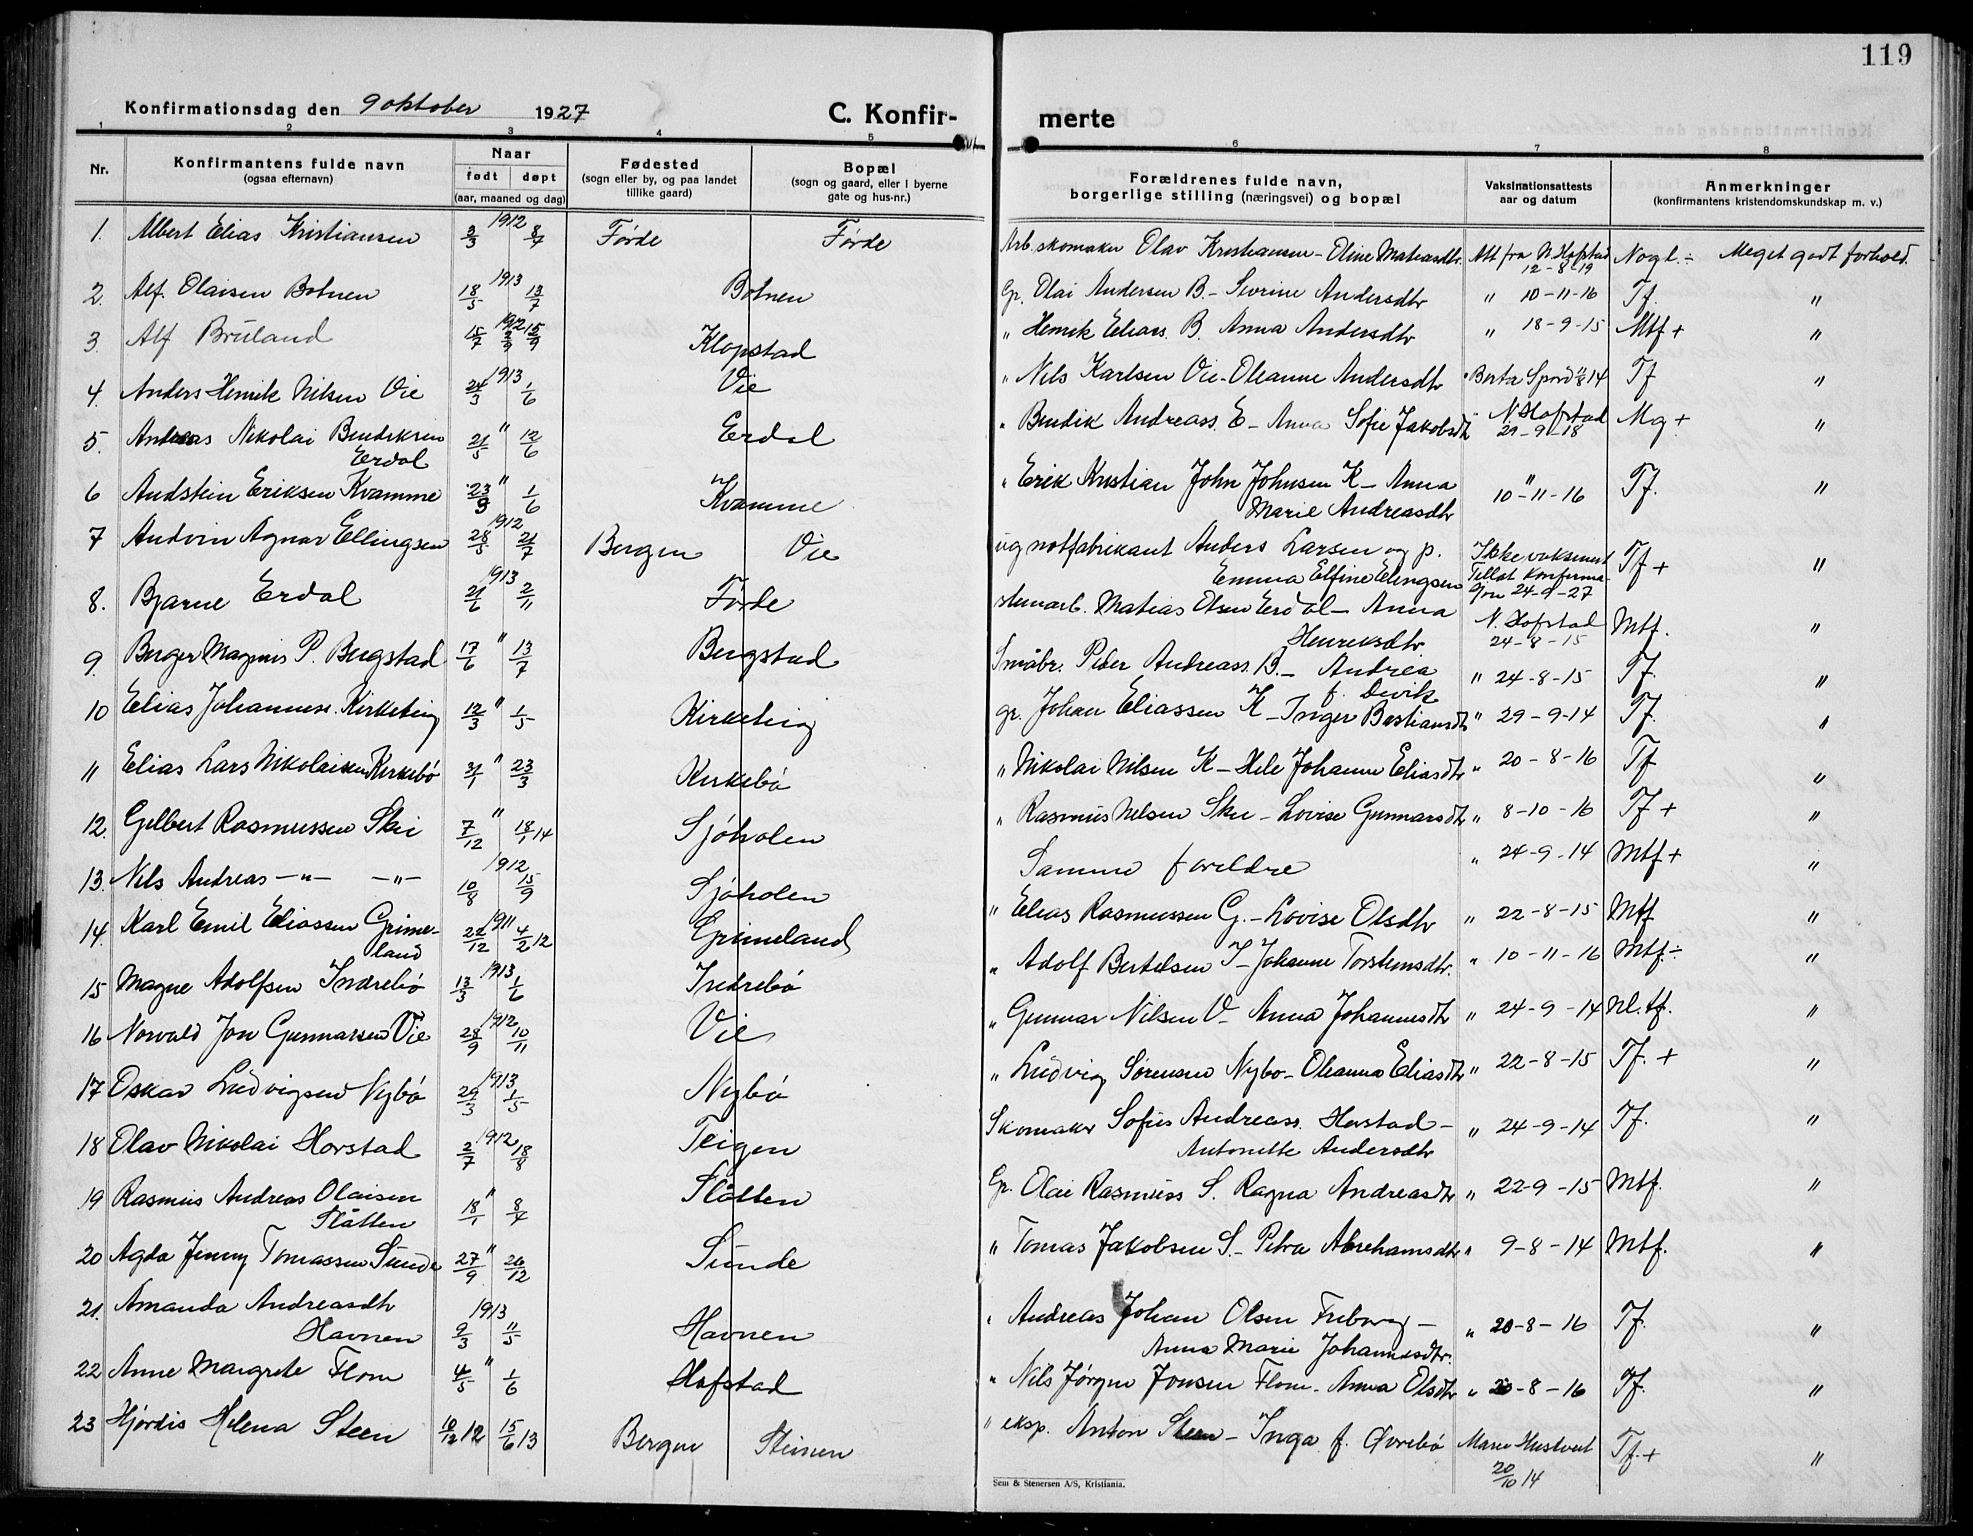 119
Konfirmationsdag den 9 oktober 1927 C. Konfir- merte
1 2 3 4 5 6 7 8
Nr. Konfirmantens fulde navn (ogsaa efternavn) Naar født døpt (aar, maaned og dag) Fødested (sogn eller by, og paa landet tillike gaard) Bopæl (sogn og gaard, eller i byerne gate og hus-nr.) Forældrenes fulde navn, borgerlige stilling (næringsvei) og bopæl Vaksinationsattests aar og datum Anmerkninger (konfirmantens kristendomskundskap m. v.)
1. Albert Elias Kristiansen 1912 3/3 8/4 Förde Förde Arb. skomaker Olav Kristiansen - Oline Matiasdtr. Att fra N. Hofstad 12-8-19 Nogl. ÷ Meget godt forhold.
2. Alf. Olaisen Botnen 1913 18/5 13/7 Botnen Gr. Olai Andersen B. - Severine Andersdtr " 10-11-16 Tf. "
3. Alf Bruland 1912 15/9 Klopstad " Henrik Eliass. B. Anna Andersdtr " 18-9-15 Mtf + "
4. Anders Henrik Nilsen Vie 1913 24/3 1/6 Vie " Nils Karlsen Vie - Oleanne Andersdtr " Berta Spord 14 Tf "
5. Andreas Nikolai Bendiksen Erdal " 21/5 12/6 Erdal " Bendik Andreass. E - Anna Sofie Jakobsdtr N. Hofstad 21-9-18 Mg + "
6 Audstein Eriksen Kvamme " 23/3 1/6 Kvamme " Erik Kristian John Johnsen K - Anna Marie Andreasdtr " 10-11-16 Tf. "
7 Audvin Agnar Ellingsen 1912 28/5 21/7 Bergen Vie ug notfabrikant Anders Larsen og p. Emma Elfine Elingsen Ikke vaksinert Tillat Konfirma- Tf + "
8. Bjarne Erdal 1913 21/6 2/11 Förde stenarb. Matias Olsen Erdal - Anna Henriksdtr N. Hofstad 24-8-15 Mtf. "
9. Berger Magnus P. Bergstad " 17/6 13/7 Bergstad Småbr. Peder Andreass. B. - Andrea f. Devik " 24-8-15 Tf. "
10 Elias Johannese. Kirketeig " 12/3 1/5 Kirketeig gr. Johan Eliassen K - Inger Bastiansdtr " 29-9-14 Tf. "
11 Elias Lars Nikolaisen Kirkebö " 31/1 23/3 Kirkebö " Nikolai Nilsen K - Hele Johanne Eliasdtr " 20-8-16 Tf "
12. Gilbert Rasmussen Skei " 7/12 18/1 14 Sjöholen " Rasmus Nilsen Skei - Lovise Gunnarsdtr " 8-10-16 Tf + "
13. Nils Andreas -"- -"- 1912 10/8 15/9 Sjöholen Samme foreldre " 24-9-14 Mtf + "
14. Karl Emil Eliassen Grimeland 1911 22/12 4/2 12 Grimeland " Elias Rasmussen G. - Lovise Olsdtr " 22-8-15 Mtf "
15 Magne Adolfsen Indrebö 1913 13/3 1/6 Indrebö " Adolf Bertelsen I - Johanne Torstensdtr. " 10-11-16 Mtf. ÷ "
16 Norvald Jon Gunnarsen Vie 1912 28/9 10/11 Vie " Gunnar Nilsen V - Anna Johannesdtr " 24-9-14 Nl. tf. "
17 Oskar Ludvigsen Nybö 1913 29/3 1/5 Nybö " Ludvig Sörensen Nybo - Oleanna Eliasdtr " 22-8-15 Tf. + "
18 Olav Nikolai Horstad 1912 2/7 18/8 Teigen Skomaker Sofus Andreass. Horstad - Antonette Andersdtr " 24-9-14 Tf. "
19 Rasmus Andreas Olaisen Slåtten " 18/1 8/4 Slåtten Gr. Olai Rasmuss S. Ragna Andreasdtr " 22-9-15 Mtf. "
20 Agda Jenny Tomassen Sunde " 27/9 26/12 Sunde " Tomas Jakobsen S. - Petra Abrehamsdtr " 9-8-14 Mtf. "
21. Amanda Andreasdtr Havnen 1913 9/3 11/5 Havnen " Andreas Johan Olsen Friborg - Anna Marie Johannesdtr. " 20-8-16 Tf. "
22 Anne Margrete Flom " 4/5 1/6 Hofstad " Nils Jörgen Jonsen Flom. Anna Olsdtr " 20-8-16 Tf. "
23 Hjördis Helena Steen 10/12 12 15/6 13 Bergen Steinen " eksp. Anton Steen - Inga f. Övrebö Marie Hustveit 20/10 14 Tf. + "
Sem & Stenersen A/S, Kristiania.